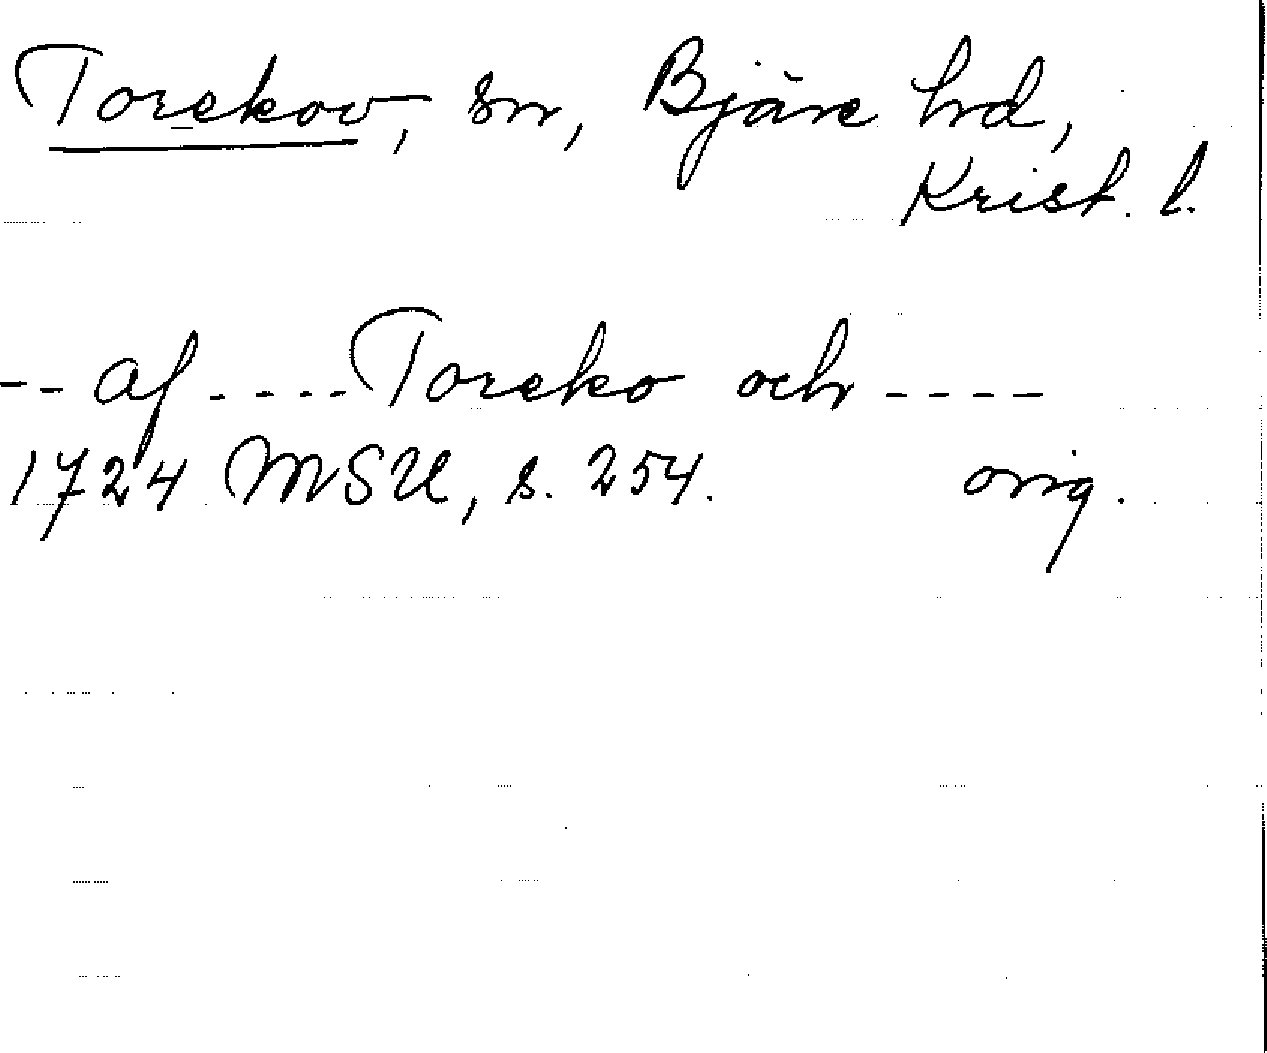 Torekov, sn, Bjäre hd,
Krist. l.
-- af .... Toreko och ----
1724 MSU, s. 254. orig.